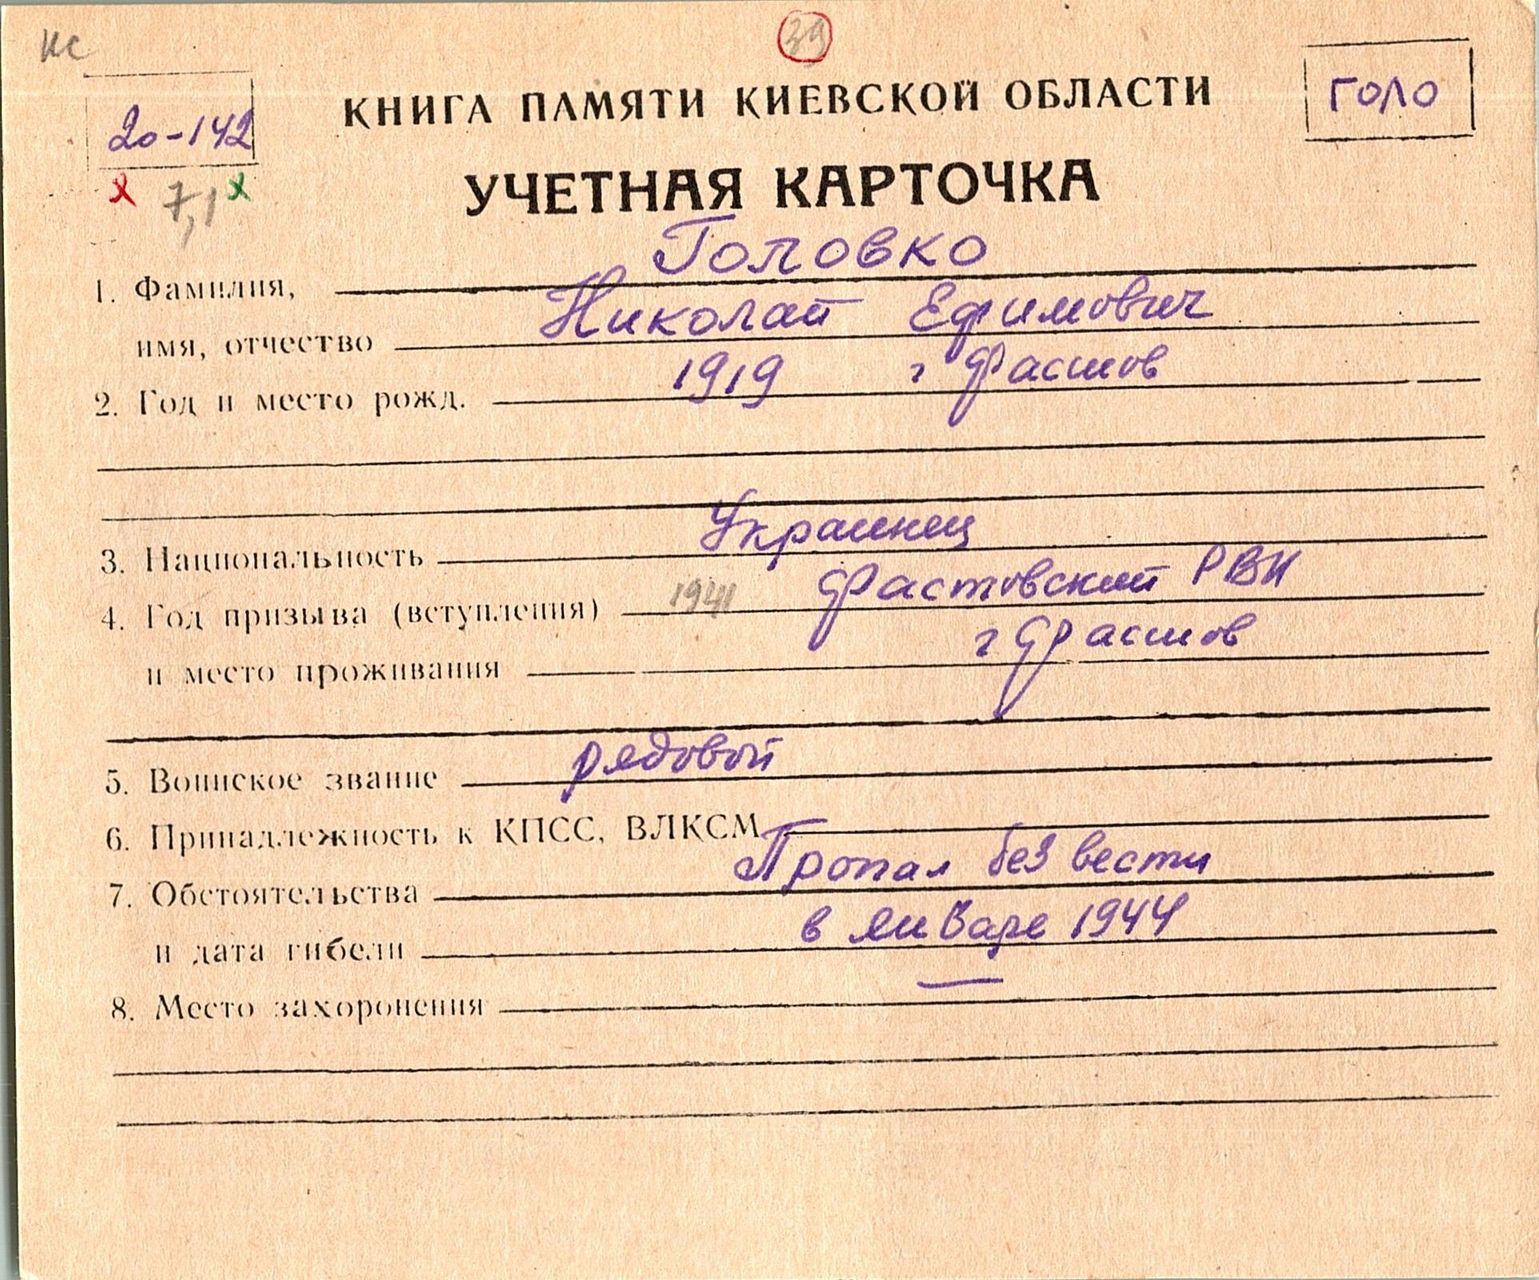 ис
39
20-142
КНИГА ПАМЯТИ КИЕВСКОЙ ОБЛАСТИ
ГОЛО
7,1
УЧЕТНАЯ КАРТОЧКА
1. Фамилия, Головко
имя, отчество Николай Ефимович
2. Год и место рожд. 1919 г Фастов
3. Национальность Украинец
4. Год призыва (вступления) 1941 Фастовский РВК
и место проживания г Фастов
5. Воинское звание рядовой
6. Принадлежность к КПСС, ВЛКСМ
7. Обстоятельства Пропал без вести
и дата гибели в январе 1944
8. Место захоронения —